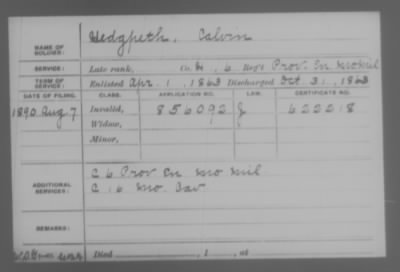 Hedgpeth, Calvin
NAME OF SOLDIER:
SERVICE: Late rank, Co. H, 6 Reg't Prov. En. Mo Mil
TERM OF SERVICE: Enlisted Apr. 1, 1863 Discharged Oct. 31, 1863
DATE OF FILING. CLASS. APPLICATION NO. LAW. CERTIFICATE NO.
1890 Aug 7 Invalid, 856092 J 622218
Widow,
Minor,
C 6 Prov En Mo Mil
ADDITIONAL SERVICES: C. 6 Mo. Cav
REMARKS:
Died , 1 , at